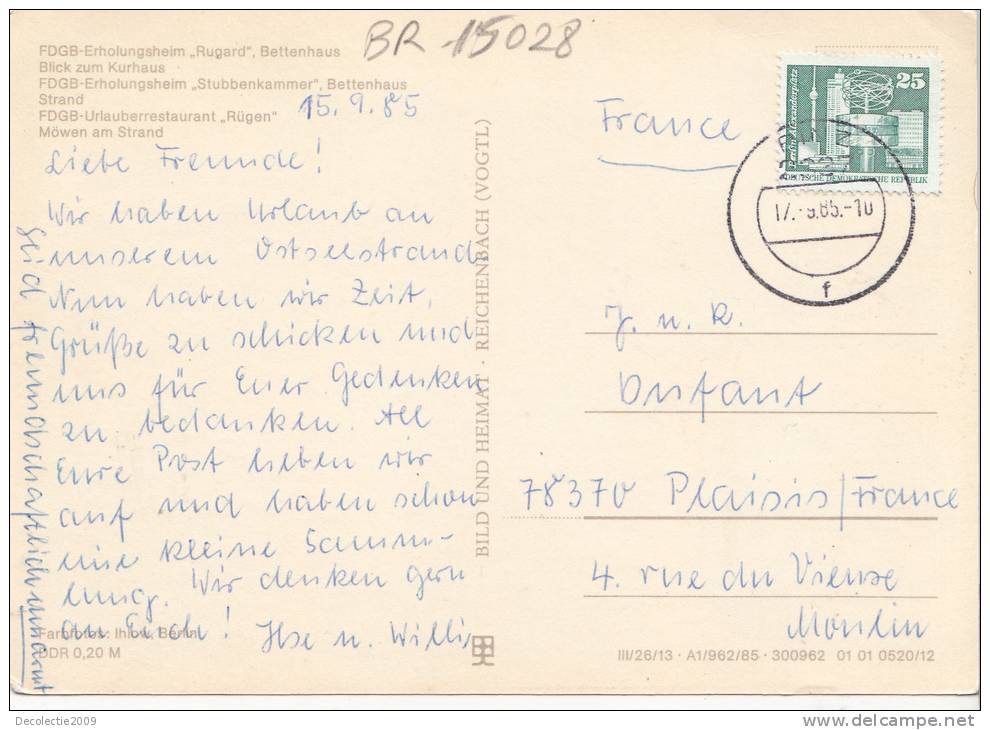 BR-15028
FDGB-Erholungsheim „Rugard“, Bettenhaus
Blick zum Kurhaus
FDGB-Erholungsheim „Stubbenkammer“, Bettenhaus
Strand
FDGB-Urlauberrestaurant „Rügen“
Möwen am Strand
15.9.85
Liebe Freunde!
Wir haben Urlaub an
unserem Ostseestrand.
Nun haben wir Zeit,
Grüße zu schicken und
uns für Euer Gedenken
zu bedanken. All
Eure Post heben wir
auf und haben schon
eine kleine Samm-
lung. Wir denken gern
an Euch! Ilse u. Willi
Seid freundschaftlich umarmt
Farbfotos: Ihlow, Berlin
DDR 0,20 M
BILD UND HEIMAT · REICHENBACH (VOGTL)
France
25
Berlin-Alexanderplatz
DEUTSCHE DEMOKRATISCHE REPUBLIK
17.-9.85.-10
f
J. u. R.
Onfant
78370 Plaisis/France
4. rue du Vieuxe
Moulin
III/26/13 · A1/962/85 · 300962 01 01 0520/12
Decolectie2009
delcampe.net